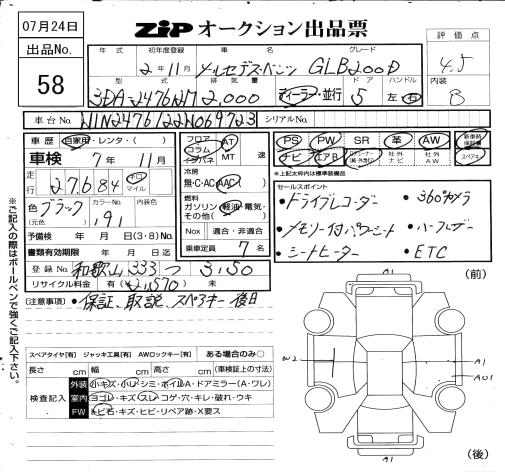 07月24日
ZIP オークション出品票
出品No.
58
評価点
4.5
内装
B
年式 初年度登録 車名 グレード
2年11月 メルセデス・ベンツ GLB200D
型式 排気量 ドア ハンドル
3DA-247612M 2,000 ディーラー・並行 5 左・右
車台No. W1N2476122N069723 シリアルNo.
車歴 自家用・レンタ・( )
車検 7年 11月
走行 27,684 キロ マイル
色 ブラック (元色) カラーNo. 191 内装色
予備検 年 月 日(3・8)No.
書類有効期限 年 月 日迄
登録No. 和歌山 333 つ 3150
リサイクル料金 有(¥ ) 未
フロア コラム インパネ AT MT 速
冷房 無・C・AC・AAC( )
燃料 ガソリン・軽油・電気・その他( )
Nox 適合・非適合
乗車定員 7名
PS PW SR 革 AW 新車時保証書
ナビ エアB 社外ナビ 社外AW スペアキー
*上記太枠内は標準装備品
セールスポイント
・ドライブレコーダー ・360°カメラ
・メモリー付パワーシート
・シートヒーター ・ETC
(注意事項)・保証、取説、スペアキー後日
スペアタイヤ[有] ジャッキ工具[有] AWロックキー[有] ある場合のみ〇
長さ cm 幅 cm 高さ cm (車検証上の寸法)
検査記入
外装 小キズ・小ヘコ・シミ・ホイルA・ドアミラー(A・ワレ)
室内 ヨゴレ・キズ・スレ・コゲ・穴・キレ・破れ・ウキ
FW トビ石・キズ・ヒビ・リペア跡・X要ス
※ご記入の際はボールペンで強くご記入下さい。
(前)
A1
W2
A1
AU1
A1
(後)